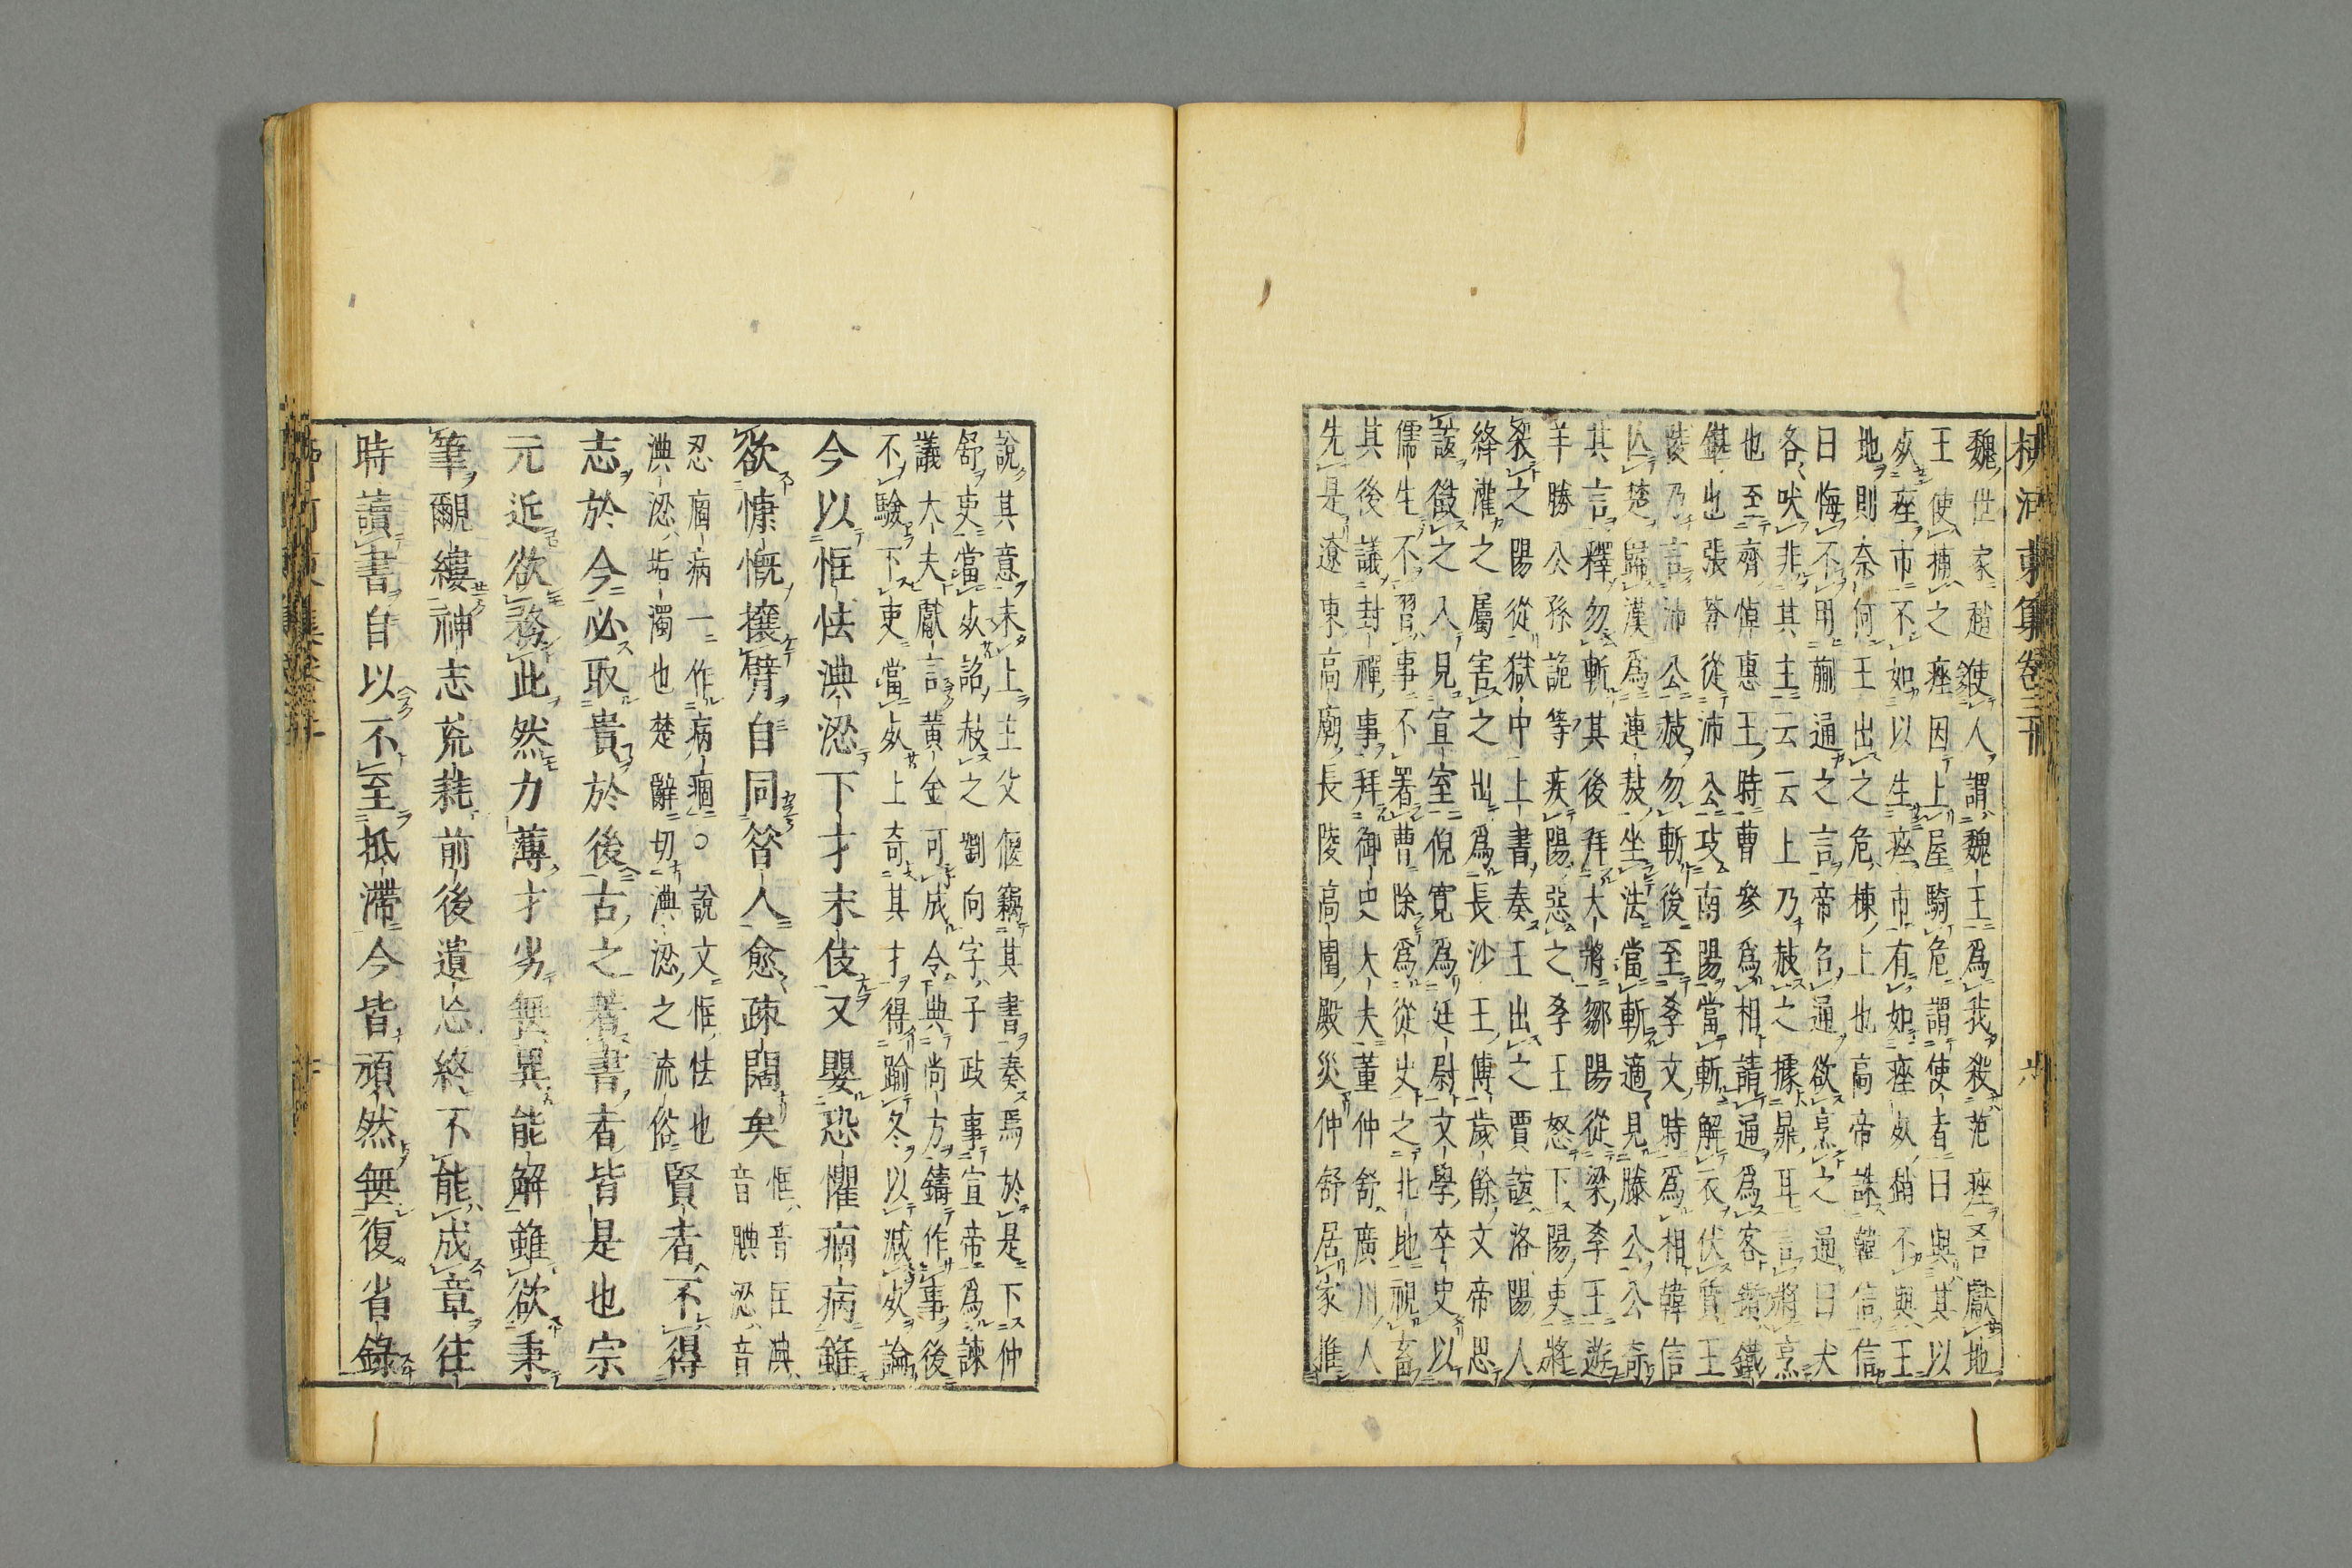 柳河東集卷三十 六
魏世家趙使人謂魏王爲我殺范痤吾獻地
王使捕之痤因上屋騎危謂使者曰與其以
死痤市不如以生痤市有如痤死趙不與王
地則奈何王出之危棟上也高帝誅韓信信
曰悔不用蒯通之言帝召通欲烹之通曰犬
各吠非其主云云上乃赦之據鼎耳言將烹
也至齊悼惠王時曹參爲相請通爲客鑕鐵
鑕也張蒼從沛公攻南陽當斬解衣伏質王
陵乃言沛公赦勿斬後至孝文時爲相韓信
亾楚歸漢爲連敖坐法當斬適見滕公公奇
其言釋勿斬其後拜大將鄒陽從梁孝王遊
羊勝公孫詭等疾陽惡之孝王怒下陽吏將
殺之陽從獄中上書奏王出之賈誼洛陽人
絳灌之屬害之出爲長沙王傅歲餘文帝思
誼徵之入見宣室倪寬爲廷尉文學卒史以
儒生不習事不署曹除爲從史之北地視畜
其後議封禪事拜御史大夫董仲舒廣川人
先是遼東高廟長陵高園殿災仲舒居家推
說其意未上主父偃竊其書奏焉於是下仲
舒吏當死詔赦之劉向字子政事宣帝爲諫
議大夫獻言黃金可成令典尚方鑄作事後
不驗下吏當死上奇其才得踰冬以減死論
今以恇怯淟涊下才末伎又嬰恐懼痼病雖
欲慷慨攘臂自同昝人愈疎闊矣
恇音匡淟
音腆涊音
忍痼病一作病痼○說文恇怯也
淟涊垢濁也楚辭切淟涊之流俗
賢者不得
志於今必取貴於後古之著書者皆是也宗
元近欲務此然力薄才劣無異能解雖欲秉
筆覼縷神志荒耗前後遺忘終不能成章往
時讀書自以不至抵滯今皆頑然無復省錄